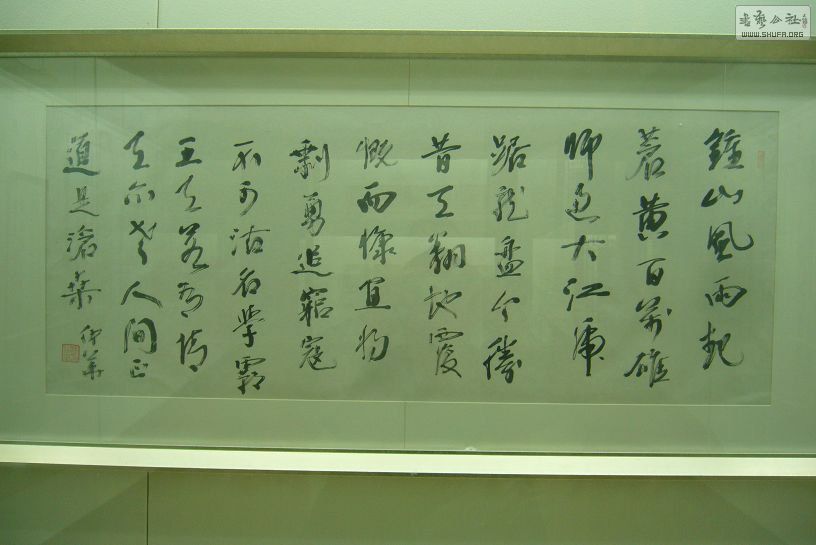 書藝公社
WWW.SHUFA.ORG
鍾山風雨起
蒼黄百萬雄
師過大江虎
踞龍盤今勝
昔天翻地覆
慨而慷宜將
剩勇追窮寇
不可沽名學霸
王天若有情
天亦老人間正
道是滄桑